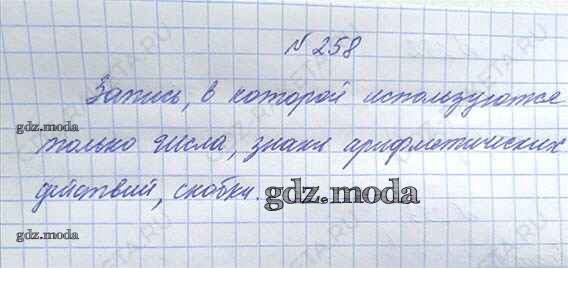 № 258
Запись, в которой используются
gdz.moda
только числа, знаки арифметических
действий, скобки.
gdz.moda
gdz.moda